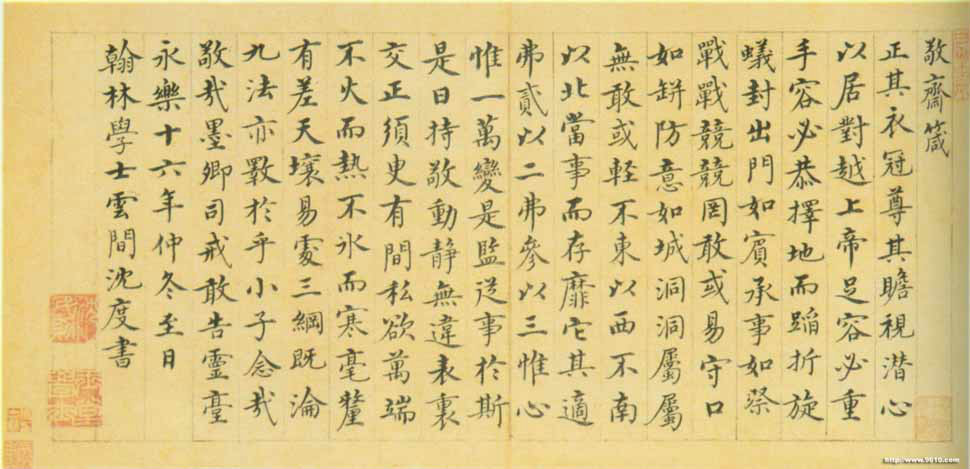 敬齋箴
正其衣冠尊其瞻視潛心
以居對越上帝足容必重
手容必恭擇地而蹈折旋
蟻封出門如賓承事如祭
戰戰兢兢罔敢或易守口
如缾防意如城洞洞屬屬
無敢或輕不東以西不南
以北當事而存靡它其適
弗貳以二弗參以三惟心
惟一萬變是監從事於斯
是曰持敬動靜無違表裏
交正須臾有間私欲萬端
不火而熱不氷而寒毫釐
有差天壤易處三綱既淪
九法亦斁於乎小子念哉
敬哉墨卿司戒敢告靈臺
永樂十六年仲冬至日
翰林學士雲間沈度書
http://www.9610.com